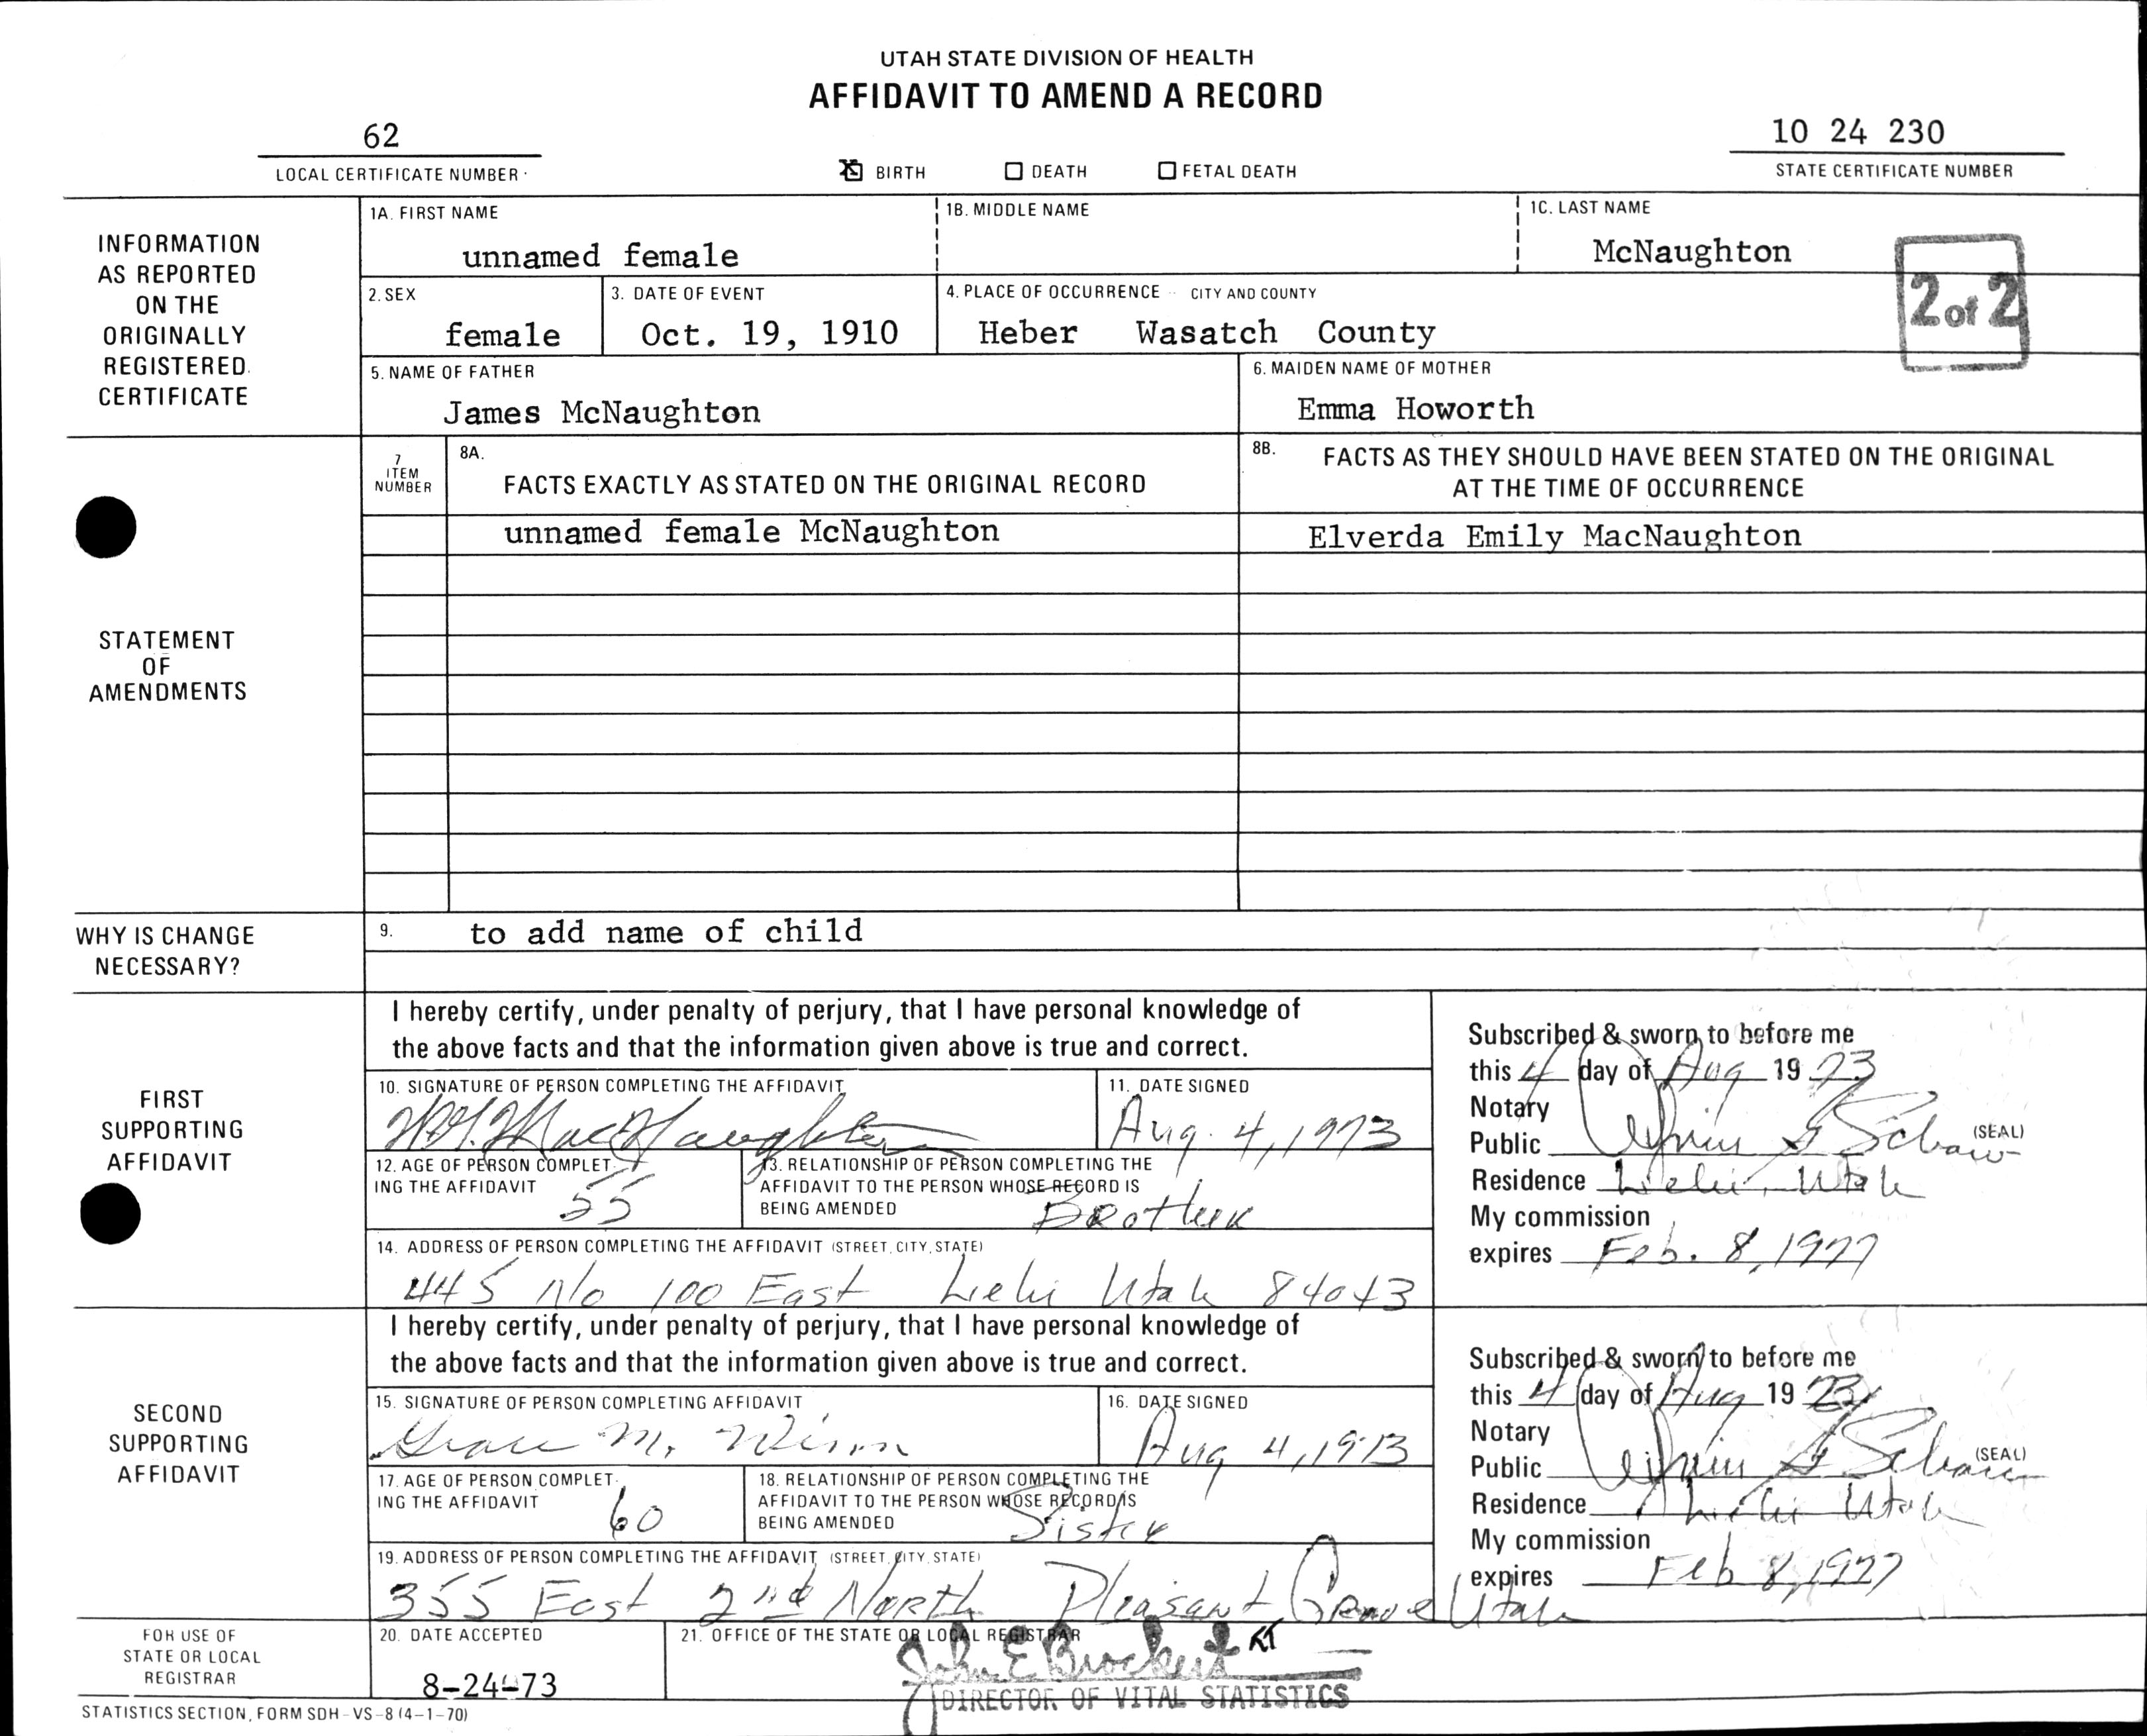 UTAH STATE DIVISION OF HEALTH
AFFIDAVIT TO AMEND A RECORD
62
LOCAL CERTIFICATE NUMBER
BIRTH DEATH FETAL DEATH
10 24 230
STATE CERTIFICATE NUMBER
INFORMATION
AS REPORTED
ON THE
ORIGINALLY
REGISTERED
CERTIFICATE
1A. FIRST NAME
unnamed female
1B. MIDDLE NAME
1C. LAST NAME
McNaughton
2 of 2
2. SEX
female
3. DATE OF EVENT
Oct. 19, 1910
4. PLACE OF OCCURRENCE -- CITY AND COUNTY
Heber Wasatch County
5. NAME OF FATHER
James McNaughton
6. MAIDEN NAME OF MOTHER
Emma Howorth
STATEMENT
OF
AMENDMENTS
7
ITEM
NUMBER
8A.
FACTS EXACTLY AS STATED ON THE ORIGINAL RECORD
8B.
FACTS AS THEY SHOULD HAVE BEEN STATED ON THE ORIGINAL
AT THE TIME OF OCCURRENCE
unnamed female McNaughton
Elverda Emily MacNaughton
WHY IS CHANGE
NECESSARY?
9. to add name of child
FIRST
SUPPORTING
AFFIDAVIT
I hereby certify, under penalty of perjury, that I have personal knowledge of
the above facts and that the information given above is true and correct.
10. SIGNATURE OF PERSON COMPLETING THE AFFIDAVIT
MacNaughton
11. DATE SIGNED
Aug. 4, 1973
12. AGE OF PERSON COMPLET-
ING THE AFFIDAVIT
55
13. RELATIONSHIP OF PERSON COMPLETING THE
AFFIDAVIT TO THE PERSON WHOSE RECORD IS
BEING AMENDED
Brother
14. ADDRESS OF PERSON COMPLETING THE AFFIDAVIT (STREET, CITY, STATE)
445 No 100 East Lehi Utah 84043
Subscribed & sworn to before me
this 4 day of Aug 19 73
Notary
Public
(SEAL)
Residence Lehi, Utah
My commission
expires Feb. 8, 1977
SECOND
SUPPORTING
AFFIDAVIT
I hereby certify, under penalty of perjury, that I have personal knowledge of
the above facts and that the information given above is true and correct.
15. SIGNATURE OF PERSON COMPLETING AFFIDAVIT
Grace M.
16. DATE SIGNED
Aug 4, 1973
17. AGE OF PERSON COMPLET-
ING THE AFFIDAVIT
60
18. RELATIONSHIP OF PERSON COMPLETING THE
AFFIDAVIT TO THE PERSON WHOSE RECORD IS
BEING AMENDED
Sister
19. ADDRESS OF PERSON COMPLETING THE AFFIDAVIT (STREET, CITY, STATE)
355 East 2nd North Pleasant Grove Utah
Subscribed & sworn to before me
this 4 day of Aug 19 73
Notary
Public
(SEAL)
Residence Lehi Utah
My commission
expires Feb 8, 1977
FOR USE OF
STATE OR LOCAL
REGISTRAR
20. DATE ACCEPTED
8-24-73
21. OFFICE OF THE STATE OR LOCAL REGISTRAR
John E Brockert
DIRECTOR OF VITAL STATISTICS
STATISTICS SECTION, FORM SDH-VS-8 (4-1-70)